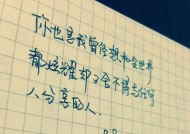 你也是我曾经想和全世界
都炫耀却又舍不得去任何
人分享的人.